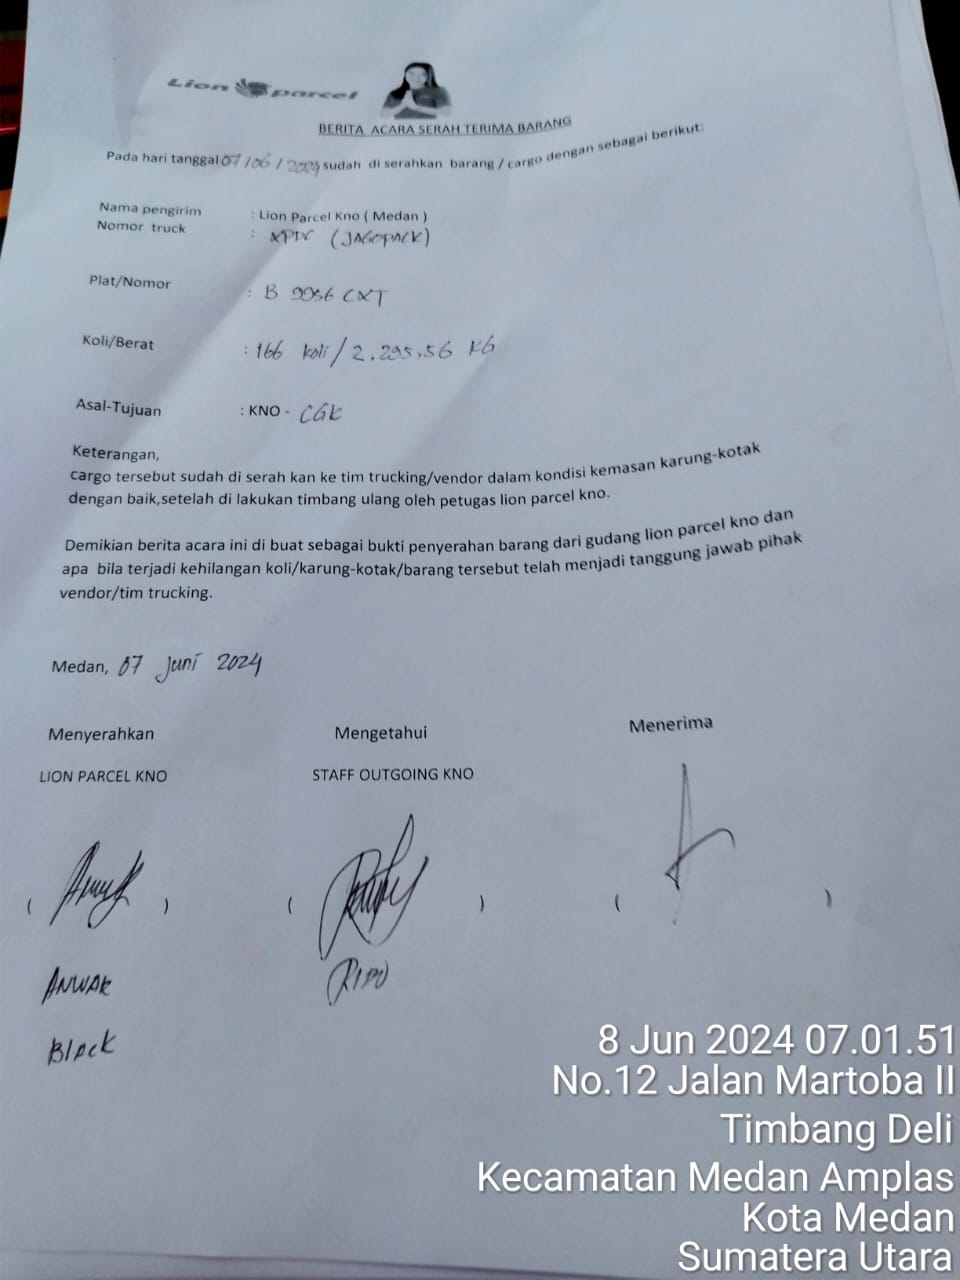 Lion parcel
BERITA ACARA SERAH TERIMA BARANG
Pada hari tanggal 07/06/2024 sudah di serahkan barang / cargo dengan sebagai berikut:
Nama pengirim : Lion Parcel Kno ( Medan )
Nomor truck : XPDC (JAGOPACK)
Plat/Nomor : B 9056 CXT
Koli/Berat : 166 koli / 2.295,56 KG
Asal-Tujuan : KNO - CGK
Keterangan,
cargo tersebut sudah di serah kan ke tim trucking/vendor dalam kondisi kemasan karung-kotak
dengan baik,setelah di lakukan timbang ulang oleh petugas lion parcel kno.
Demikian berita acara ini di buat sebagai bukti penyerahan barang dari gudang lion parcel kno dan
apa bila terjadi kehilangan koli/karung-kotak/barang tersebut telah menjadi tanggung jawab pihak
vendor/tim trucking.
Medan, 07 Juni 2024
Menyerahkan Mengetahui Menerima
LION PARCEL KNO STAFF OUTGOING KNO
( ) ( ) ( )
ANWAR
Black
8 Jun 2024 07.01.51
No.12 Jalan Martoba II
Timbang Deli
Kecamatan Medan Amplas
Kota Medan
Sumatera Utara